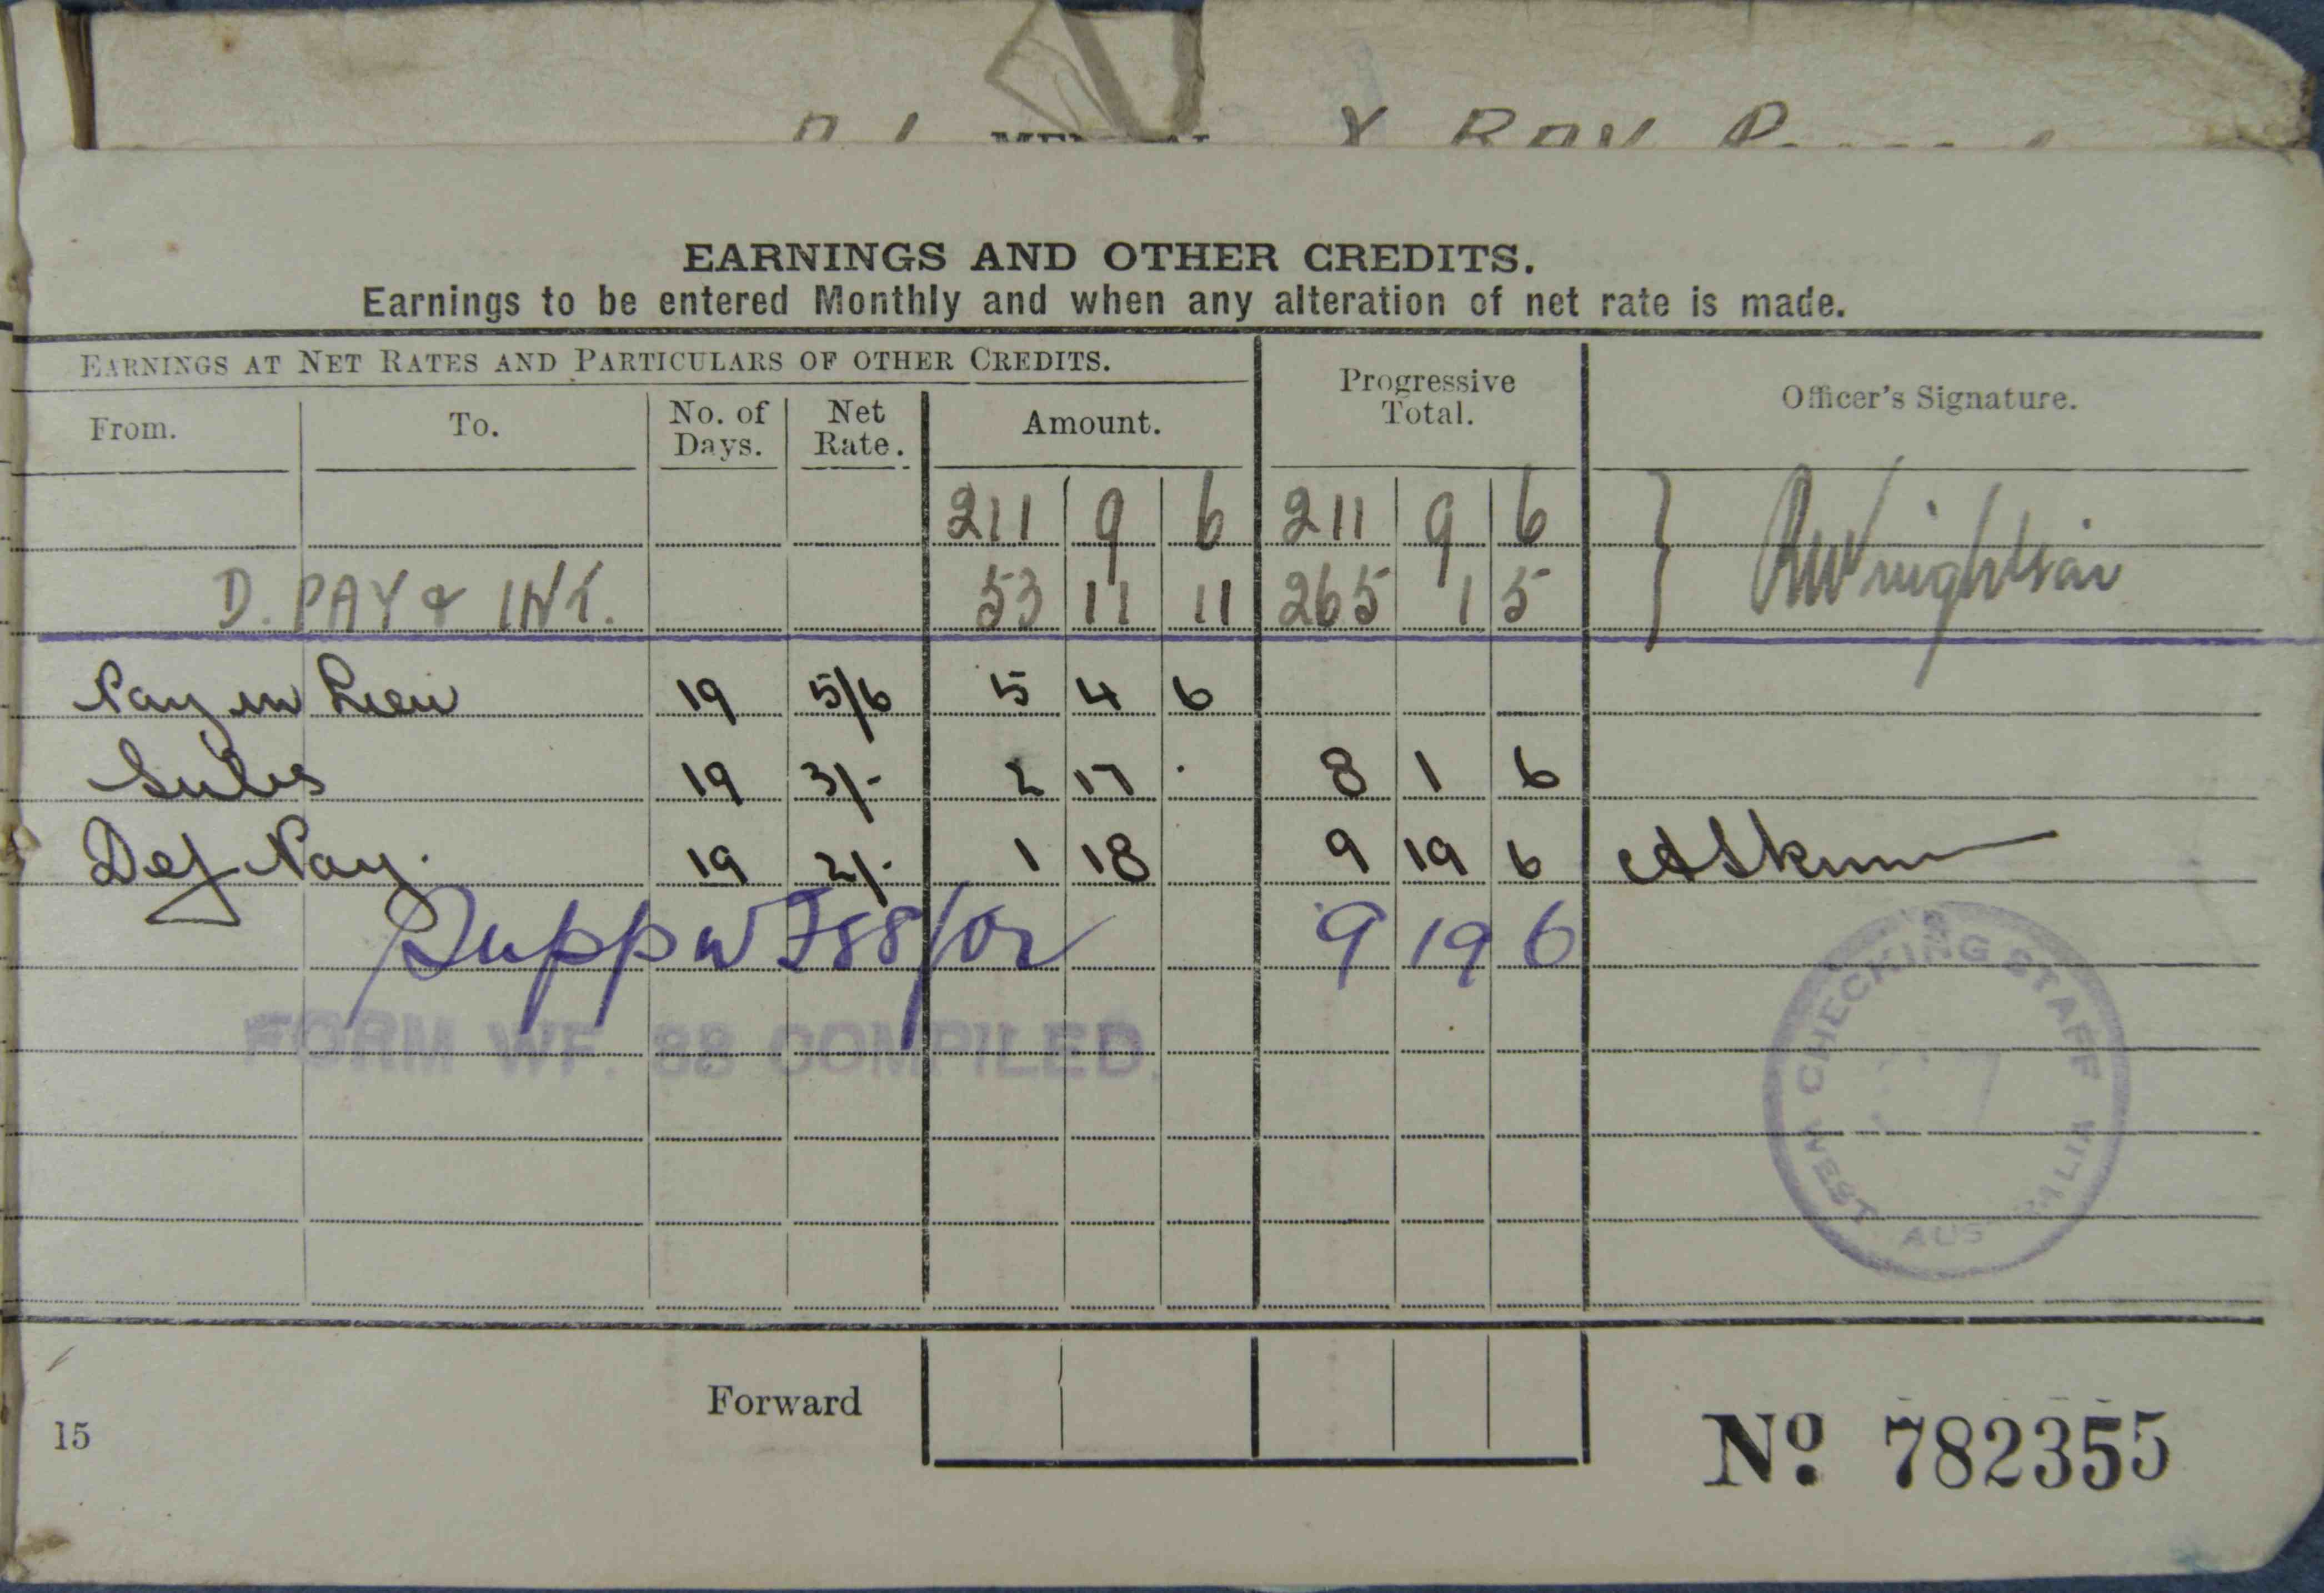 X RAY
EARNINGS AND OTHER CREDITS.
Earnings to be entered Monthly and when any alteration of net rate is made.
EARNINGS AT NET RATES AND PARTICULARS OF OTHER CREDITS.
Progressive Total.
Officer's Signature.
From. To. No. of Days. Net Rate. Amount.
211 9 6 211 9 6
D. PAY & INT. 53 11 11 265 1 5
Pay in Lieu 19 5/6 5 4 6
Subs 19 3/- 2 17 . 8 1 6
Def Pay. 19 2/- 1 18 9 19 6
9 19 6
FORM WF. 88 COMPILED.
CHECKING STAFF
WEST AUSTRALIA
Forward
15
No. 782355